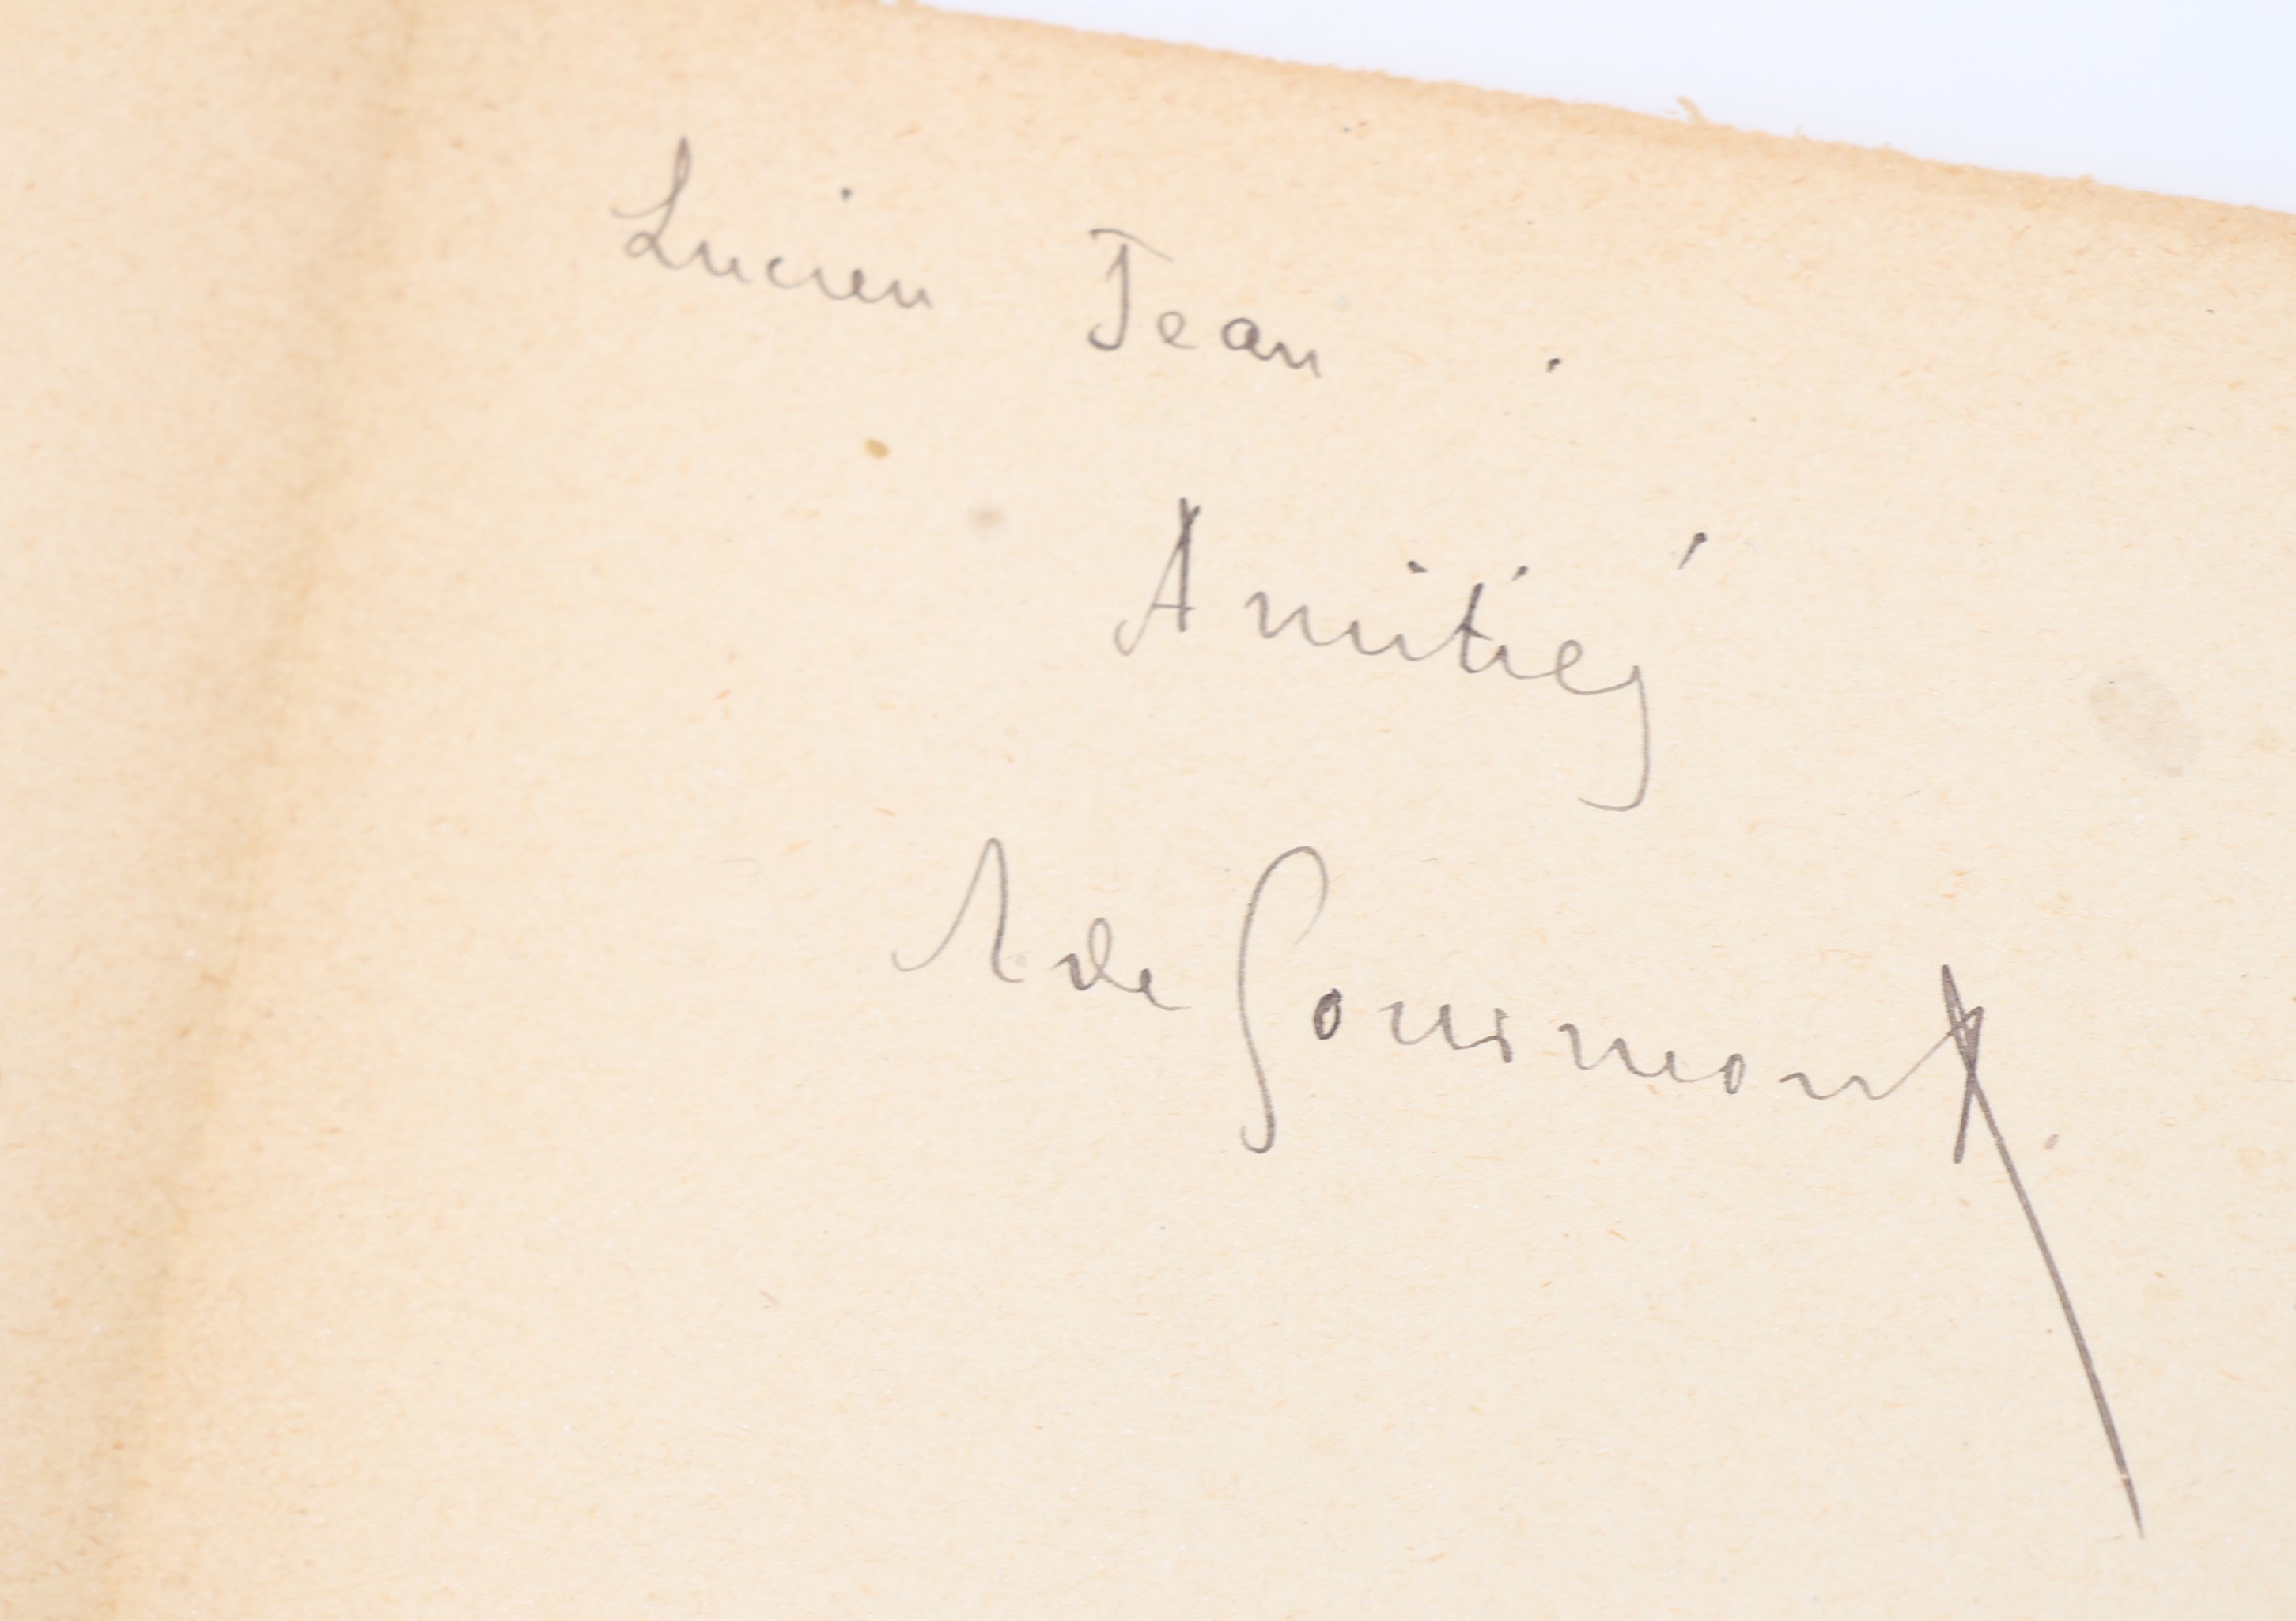 Lucien Jean .
Amitiés
R de Gourmont.